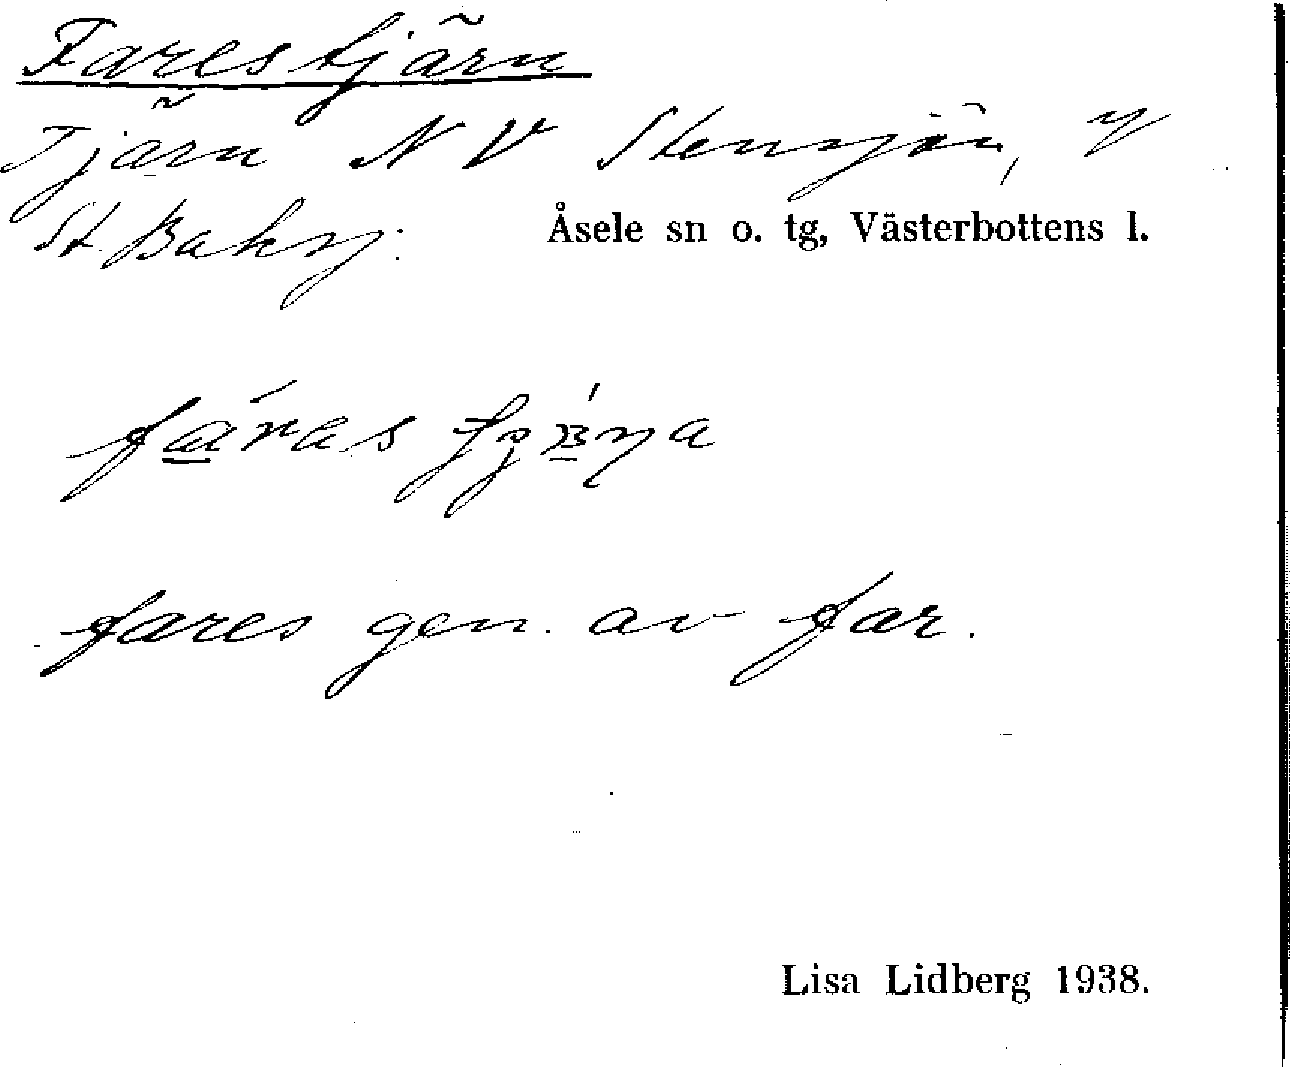 Farestjärn
Tjärn NV Stensjön, V
St Baksj. Åsele sn o. tg, Västerbottens l.
fares gen. av far.
Lisa Lidberg 1938.